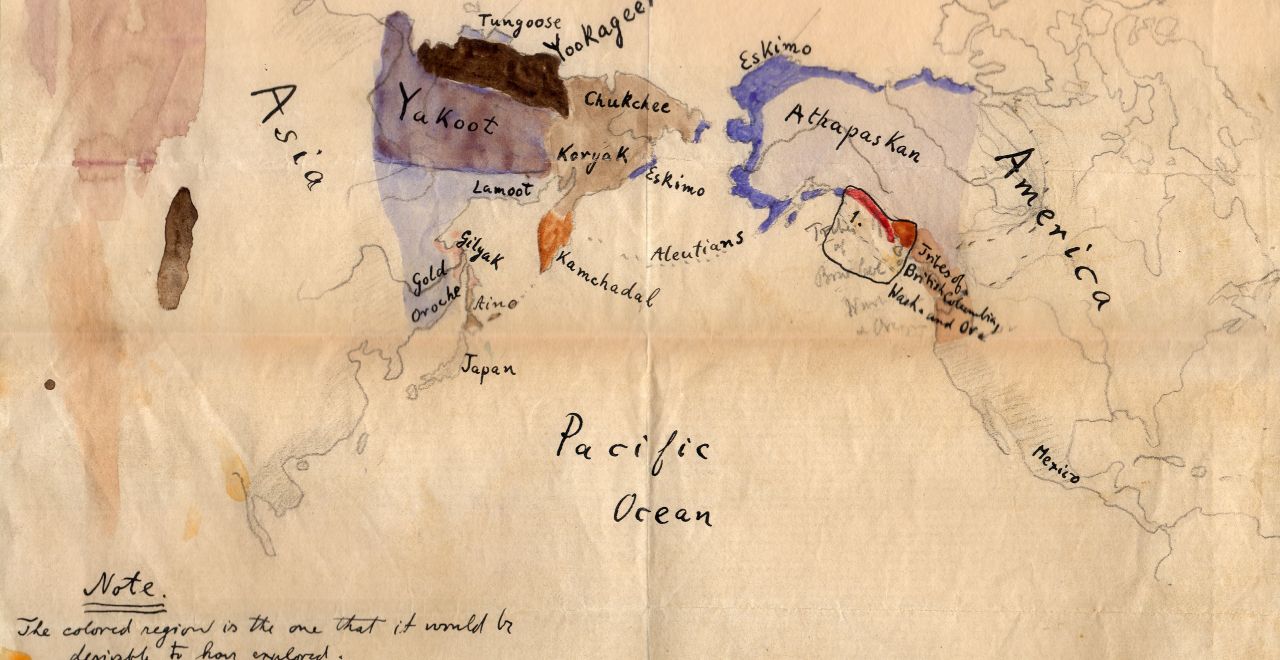 Tungoose
Yookageer
Eskimo
Asia
Yakoot
Chukchee
Athapaskan
Koryak
America
Lamoot
Eskimo
1.
Gilyak
Kamchadal
Aleutians
Tribes of
British Columbia,
Wash. and Or.
Gold
Oroche
Aino
Japan
Pacific
Ocean
Mexico
Note.
The colored region is the one that it would be
desirable to have explored.